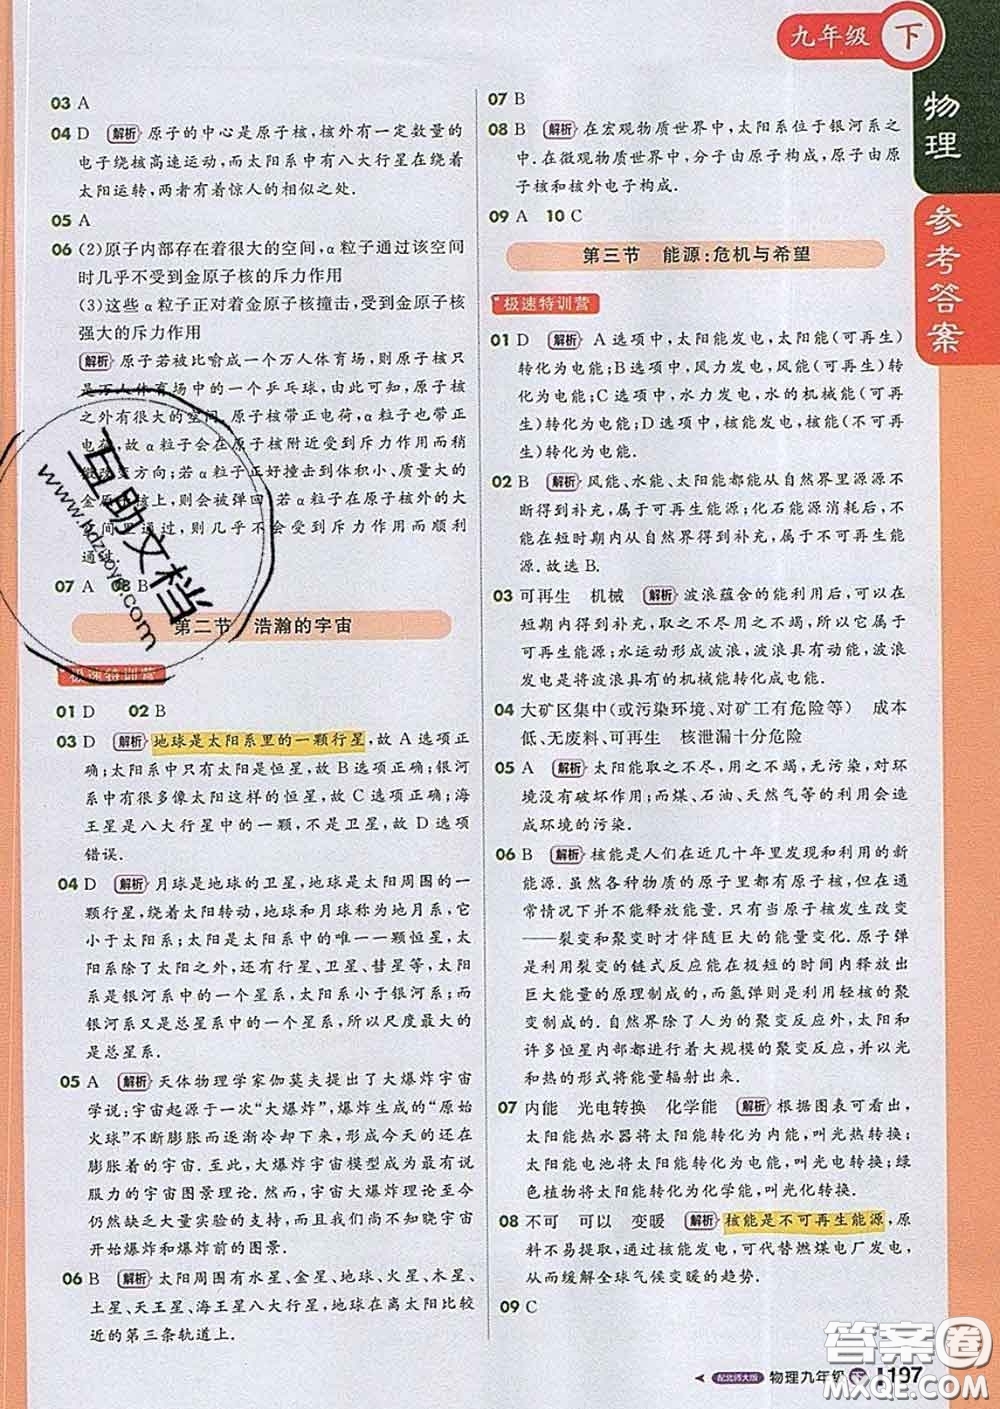 九年级 下
物理
参考答案
03 A
04 D 解析 原子的中心是原子核,核外有一定数量的
电子绕核高速运动,而太阳系中有八大行星在绕着
太阳运转,两者有着惊人的相似之处.
05 A
06 (2)原子内部存在着很大的空间,α粒子通过该空间
时几乎不受到金原子核的斥力作用
(3)这些α粒子正对着金原子核撞击,受到金原子核
强大的斥力作用
解析 原子若被比喻成一个万人体育场,则原子核只
是万人体育场中的一个乒乓球,由此可知,原子核
之外有很大的空间.原子核带正电荷,α粒子也带正
电荷,故α粒子会在原子核附近受到斥力作用而稍
微改变方向;若α粒子正好撞击到体积小、质量大的
金原子核上,则会被弹回.若α粒子在原子核外的大
空间里通过,则几乎不会受到斥力作用而顺利
通过.
07 A 08 B
第二节 浩瀚的宇宙
极速特训营
01 D 02 B
03 D 解析 地球是太阳系里的一颗行星,故A选项正
确;太阳系中只有太阳是恒星,故B选项正确;银河
系中有很多像太阳这样的恒星,故C选项正确;海
王星是八大行星中的一颗,不是卫星,故D选项
错误.
04 D 解析 月球是地球的卫星,地球是太阳周围的一
颗行星,绕着太阳转动,地球和月球称为地月系,它
小于太阳系;太阳是太阳系中的唯一一颗恒星,太
阳系除了太阳之外,还有行星、卫星、彗星等,太阳
系是银河系中的一个星系,太阳系小于银河系;而
银河系又是总星系中的一个星系,所以尺度最大的
是总星系.
05 A 解析 天体物理学家伽莫夫提出了大爆炸宇宙
学说:宇宙起源于一次“大爆炸”,爆炸生成的“原始
火球”不断膨胀而逐渐冷却,形成今天的宇宙,且在
膨胀着的宇宙.至此,大爆炸宇宙模型成为最有说
服力的宇宙图景理论.然而,宇宙大爆炸理论至今
仍然缺乏大量实验的支持,而且我们尚不知晓宇宙
开始爆炸和爆炸前的图景.
06 B 解析 太阳周围有水星、金星、地球、火星、木星、
土星、天王星、海王星八大行星,地球在离太阳比较
近的第三条轨道上.
07 B
08 B 解析 在宏观物质世界中,太阳系位于银河系之
中.在微观物质世界中,分子由原子构成,原子由原
子核和核外电子构成.
09 A 10 C
第三节 能源:危机与希望
极速特训营
01 D 解析 A选项中,太阳能发电,太阳能(可再生)
转化为电能;B选项中,风力发电,风能(可再生)转
化为电能;C选项中,水力发电,水的机械能(可再
生)转化为电能;D选项中,核能发电,核能(不可再
生)转化为电能.
02 B 解析 风能、水能、太阳能都能从自然界里源源不
断得到补充,属于可再生能源;化石能源消耗后,不
能在短时期内从自然界得到补充,属于不可再生能
源.故选B.
03 可再生 机械 解析 波浪蕴含的能利用后,可以永
不断得到补充,取之不尽用之不竭,所以它属于可
再生能源;水运动形成波浪,波浪具有动能,波浪
发电是将波浪具有的机械能转化成电能.
04 大矿区集中(或污染环境、对矿工有危险等) 成本
低、无废料、可再生 核泄漏十分危险
05 A 解析 太阳能取之不尽,用之不竭,无污染,对环
境没有破坏作用;而煤、石油、天然气等的利用会造
成环境的污染.
06 B 解析 核能是人们在近几十年里发现和利用的新
能源.虽然各种物质的原子里都有原子核,但在通
常情况下并不能释放能量.只有当原子核发生改变
——裂变和聚变时才伴随巨大的能量变化.原子弹
是利用裂变的链式反应能在极短的时间内释放出
巨大能量的原理制成的,而氢弹则是利用轻核的聚
变制成的.自然界除了人为的聚变反应外,太阳和
许多恒星内部都进行着大规模的聚变反应,并以光
和热的形式将能量辐射出来.
07 内能 光电转换 化学能 解析 根据图表可看出,
太阳能热水器将太阳能转化为内能,叫光热转换;
太阳能电池将太阳能转化为电能,叫光电转换;绿
色植物将太阳能转化为化学能,叫光化转换.
08 不可 可以 变暖 解析 核能是不可再生能源,原
料不易提取,通过核能发电,可代替燃煤电厂发电,
从而缓解全球气候变暖的趋势.
09 C
配北师大版 物理九年级 下 1197
互助文档
www.hdzuoye.com
答案圈
MXQE.COM